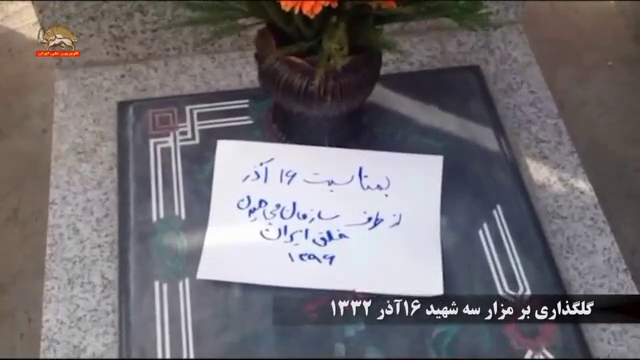 تلویزیون ملی ایران
بمناسبت ۱۶ آذر
از طرف سازمان مجاهدین
خلق ایران
۱۳۹۶
گلگذاری بر مزار سه شهید ۱۶آذر ۱۳۳۲